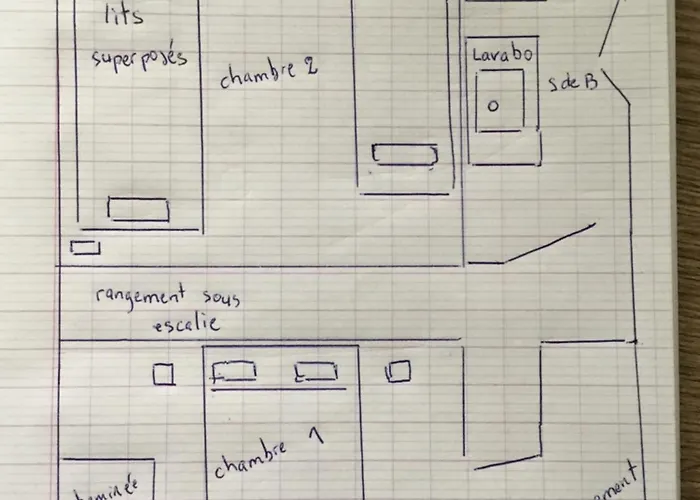 lits
superposés
chambre 2
Lavabo
SdeB
rangement sous
escalie
chambre 1